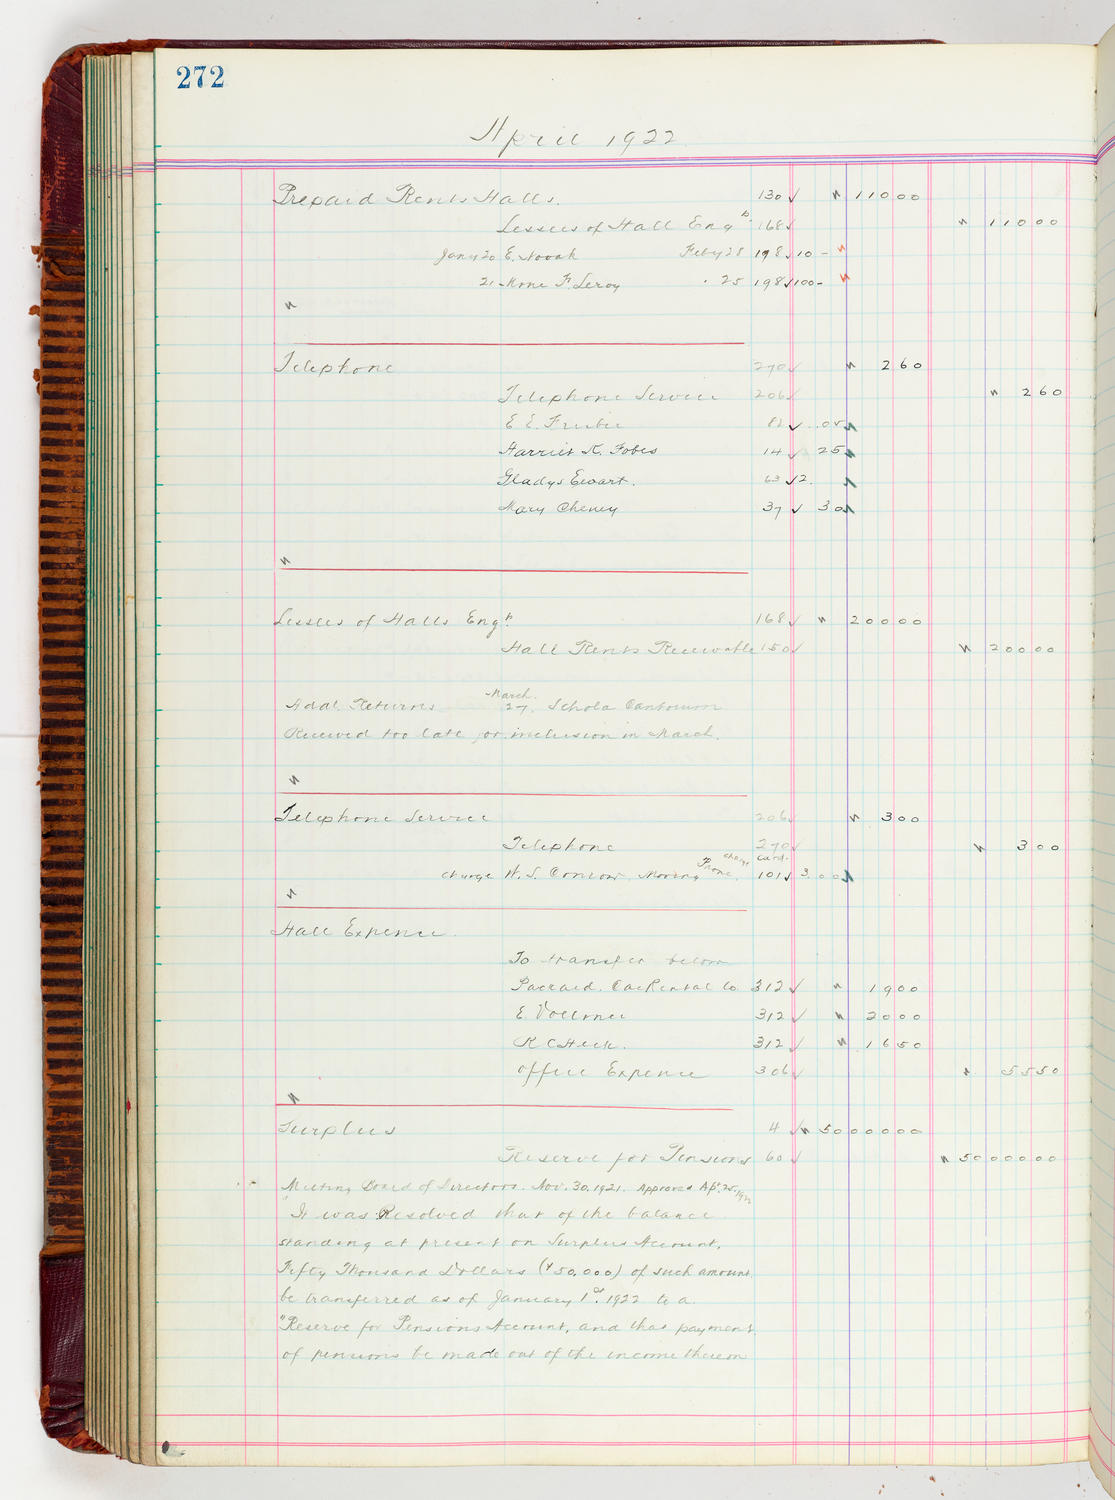 272
April 1922
Prepaid Rents Halls. 130 ✓ 110 00
Lessees of Hall Eng 168 ✓ 110 00
Jany 20 E. Novak Feby 28 198 ✓ 10 -
21 F. Leroy . 25 198 ✓ 100 -
Telephone 270 ✓ 2 60
Telephone Service 206 ✓ 2 60
E. E. 82 ✓ .05
Harriet K. Fobes 14 ✓ 25
Gladys Ewart. 63 ✓ 2.
Mary Cheney 37 ✓ 30
Lessees of Halls Eng 168 ✓ 200 00
Hall Rents Receivable 150 ✓ 200 00
March
Addl. Returns 27. Schola Cantorum
Received too late for inclusion in March.
Telephone Service 206 ✓ 3 00
Telephone 270 ✓ 3 00
charge card.
charge W. S. Moving Phone. 101 ✓ 3.00
Hall Expense.
To transfer below
Packard. Car Rental Co 312 ✓ 19 00
E. Vollmer 312 ✓ 20 00
R C Heck. 312 ✓ 16 50
Office Expense 306 ✓ 55 50
Surplus 4 ✓ 50 000 00
Reserve for Pensions 60 ✓ 50 000 00
Meeting Board of Directors. Nov. 30, 1921. Approved Apr. 25, 1922
"It was Resolved that of the balance
standing at present on Surplus Account,
Fifty Thousand Dollars ($50,000) of such amount
be transferred as of January 1st. 1922 to a
"Reserve for Pensions Account, and that payment
of pensions be made out of the income thereon